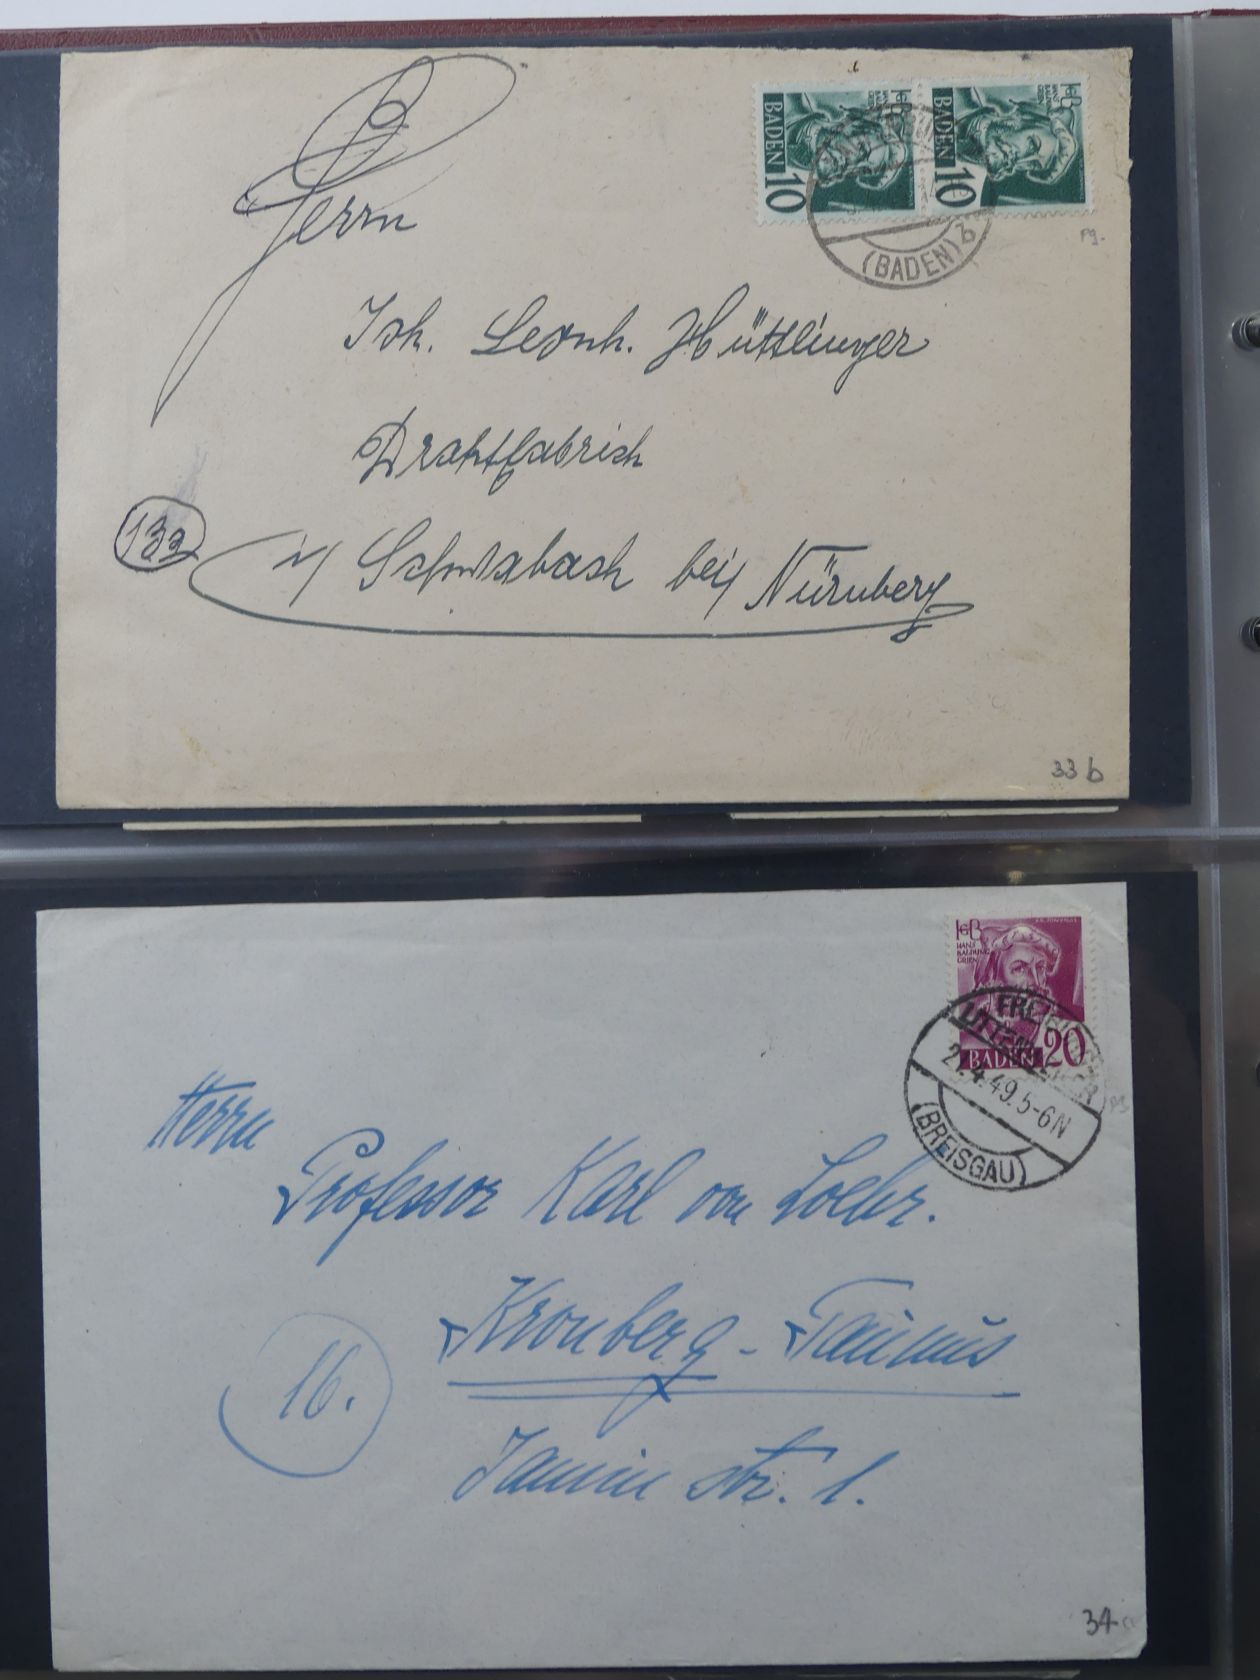 HGB
HANS
BALDUNG
GRIEN
BADEN
10
BADEN
10
(BADEN) b
Herrn
Joh. Leonh. Hüttlinger
Drahtfabrick
(13a)
Schwabach bei Nürnberg
33 b
HGB
HANS
BALDUNG
GRIEN
BADEN 20
2.4.49.5-6N
(BREISGAU)
Herrn
Professor Karl von Loehr.
Kronberg - Taunus
16.
str. 1.
34